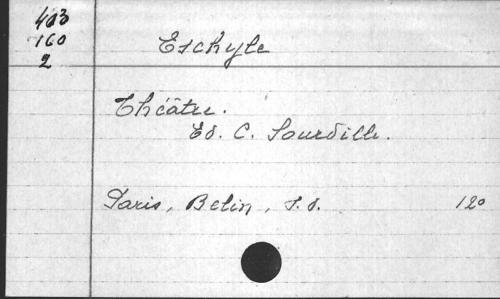 403
160
2
Eschyle
Théâtre.
Ed. C. Sourdille.
Paris, Belin, s.d. 12°